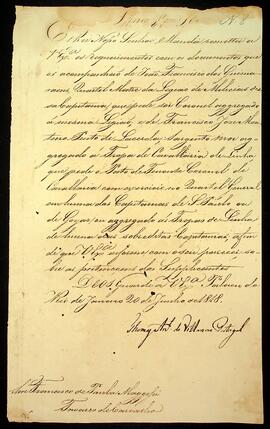 N. 8
El Rey Nosso Senhor Manda remetter a
V S.ª os requerimentos com os documentos que
os acompanhão de José Francisco dos Guimaraens
Quartel Mestre da Legião de Milicias dessa
Capitania, que pede ser Coronel aggregado
á mesma Legião, e de Francisco José
Pinto de Lacerda, Sargento mor ag
gregado á Tropa de Cavallaria de Linha
que pede o Posto de Tenente Coronel de
Cavallaria com exercicio no Quartel General
em huma das Capitanias de S. Paulo ou
de Goyaz, ou aggregado ás Tropas de Linha
de huma das sobreditas Capitanias, afim
de que V S.ª informe com o seu parecer so-
bre as pertençoens dos Supplicantes
Deos Guarde a V S.ª Palacio do
Rio de Janeiro 20 de Junho de 1818.
Thomaz Ant.º de Villanova Portugal
Francisco de Paula Magessi
Tavares de Carvalho